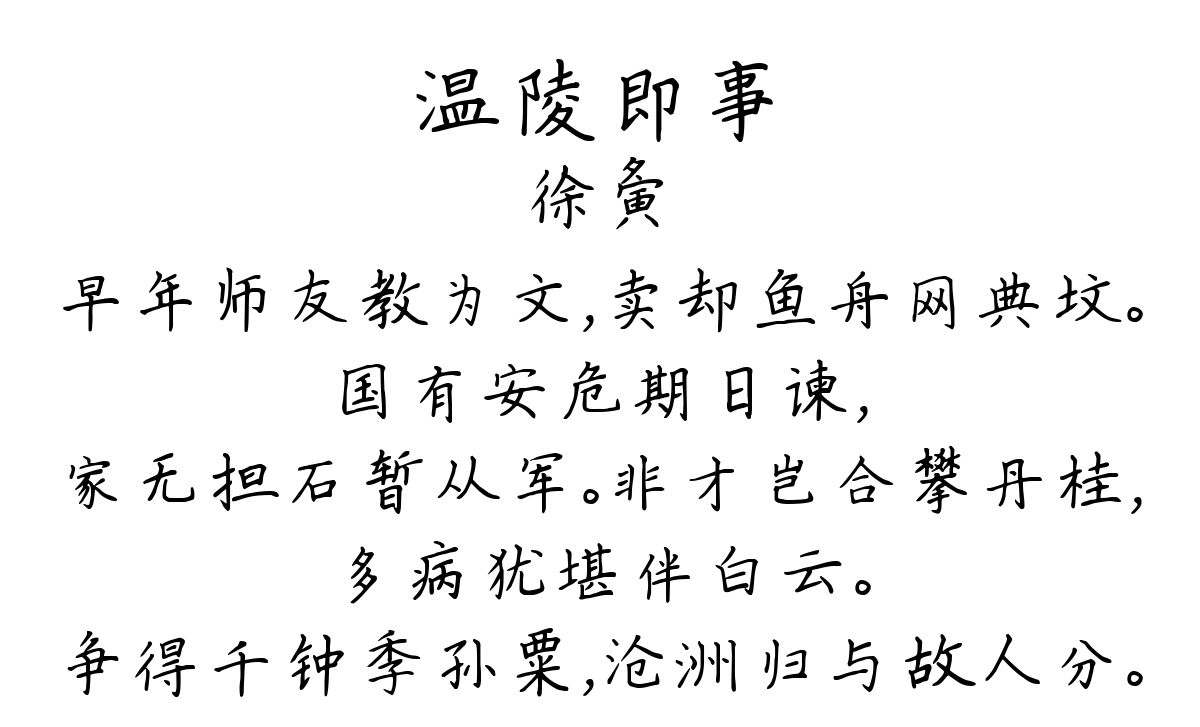 温陵即事
徐夤
早年师友教为文,卖却鱼舟网典坟。
国有安危期日谏,
家无担石暂从军。非才岂合攀丹桂,
多病犹堪伴白云。
争得千钟季孙粟,沧洲归与故人分。